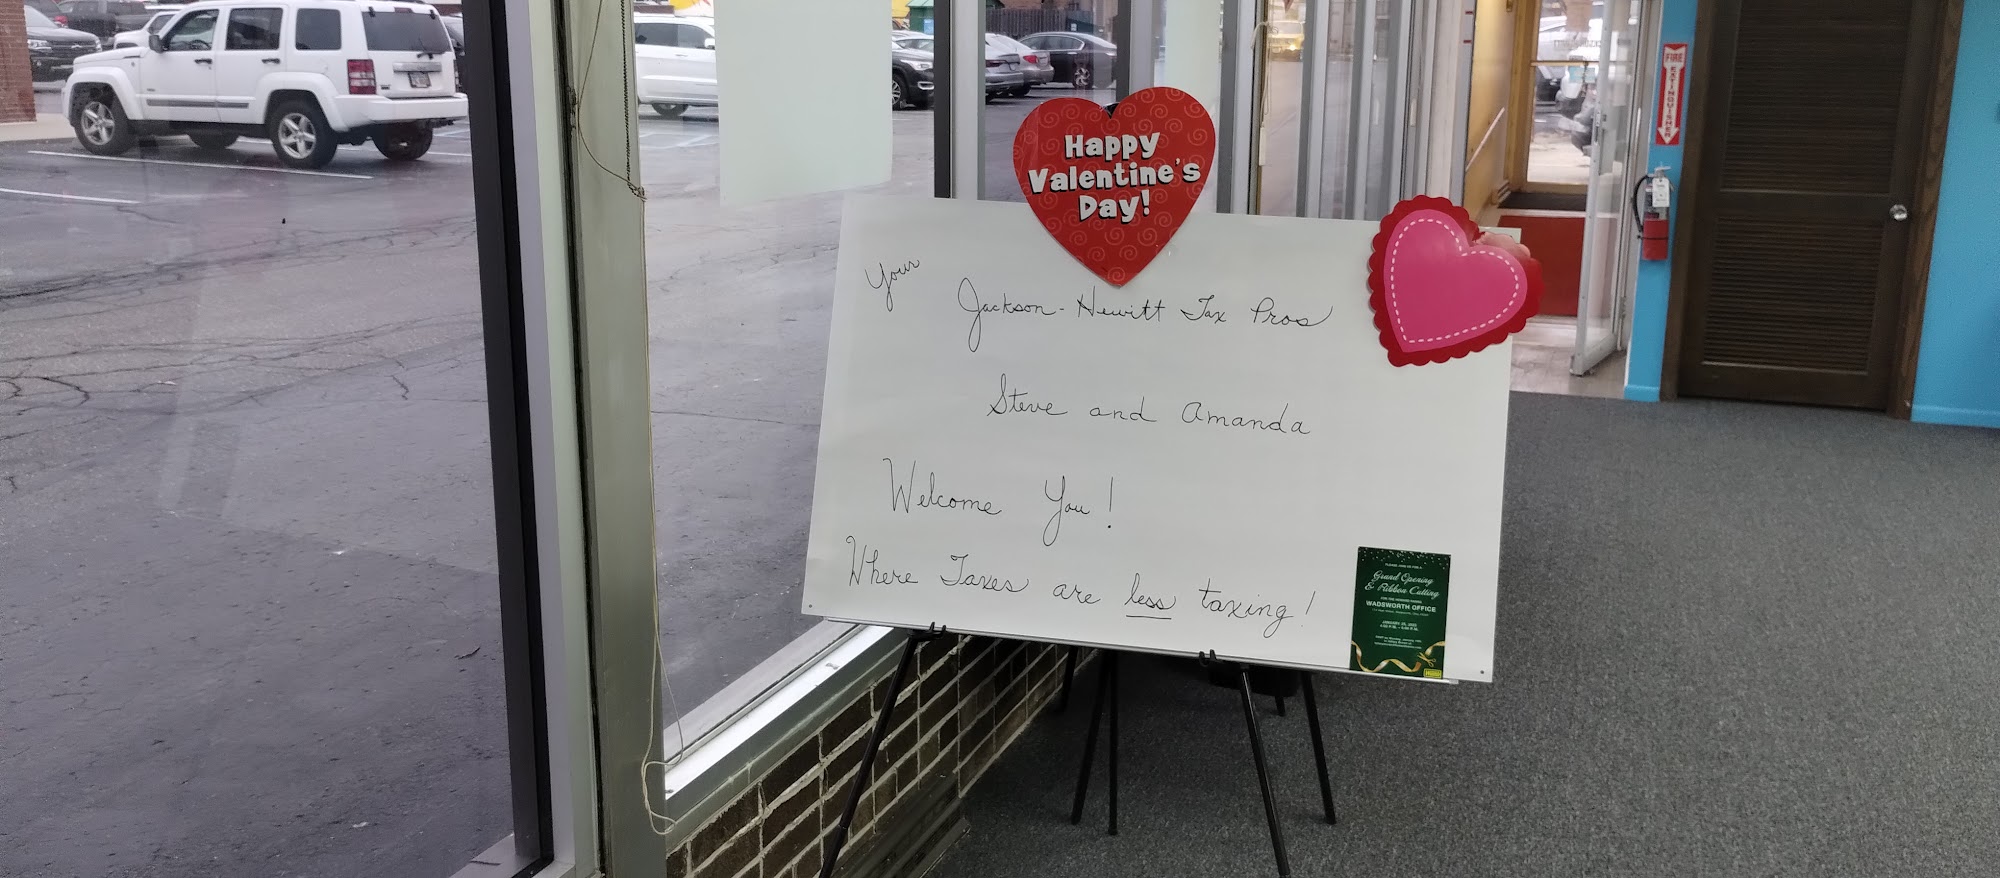 Happy
Valentine's
Day!
Your
Jackson-Hewitt Tax Pros
Steve and Amanda
Welcome You!
Where Taxes are less taxing!
PLEASE JOIN US FOR A
Grand Opening
& Ribbon Cutting
WADSWORTH OFFICE
FIRE
EXTINGUISHER